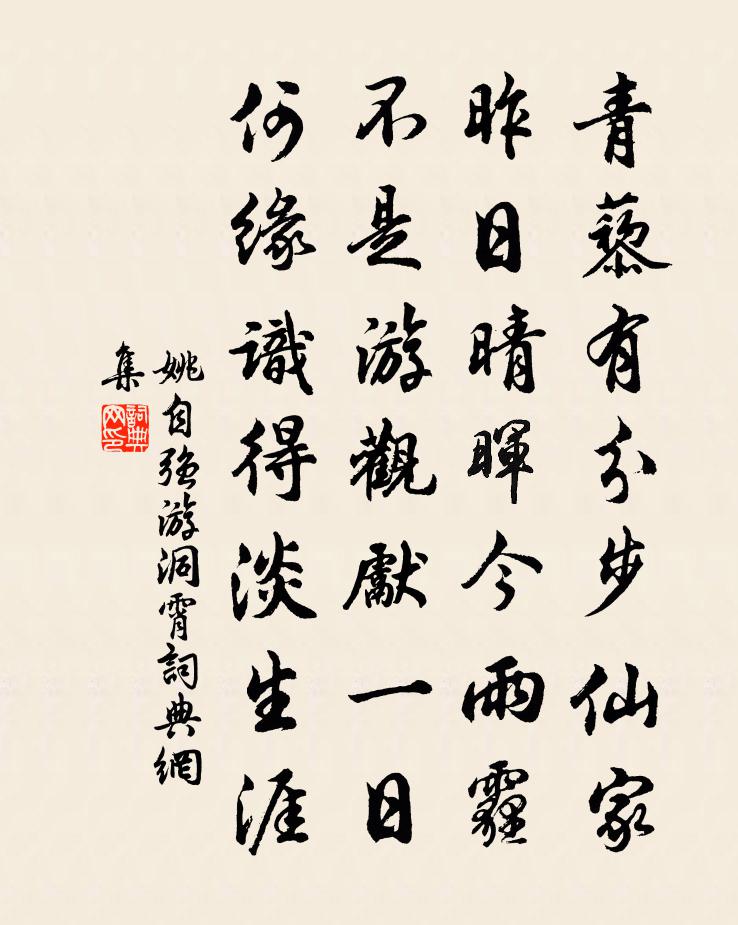 青藜有分步仙家
昨日晴暉今雨霾
不是游觀獻一日
何緣識得淡生涯
姚自强游洞霄詞典網
集
詞典
网印